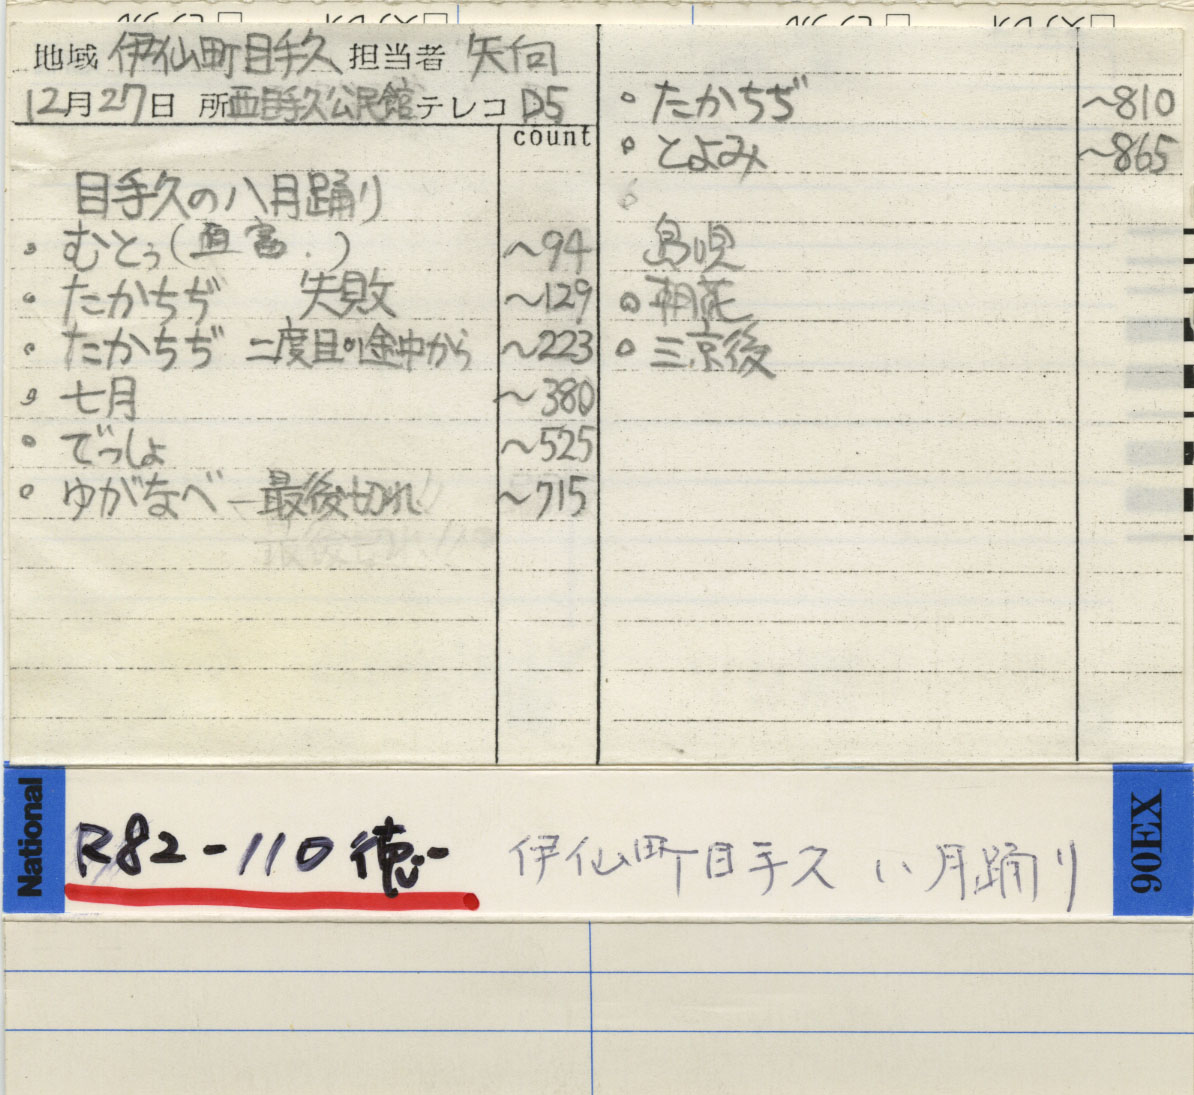 地域 伊仙町目手久 担当者 矢向
12月27日 所 西目手久公民館 テレコ D5
count
目手久の八月踊り
むとぅ ( )
〜94
たかちぢ 失敗
〜129
たかちぢ 二度目の途中から
〜223
七月
〜380
でっしょ
〜525
ゆがなべ — 最後切れ!!
〜715
たかちぢ
〜810
とよみ
〜865
島唄
朝花
三京後
National
R82-110 徳-
伊仙町目手久 八月踊り
90EX